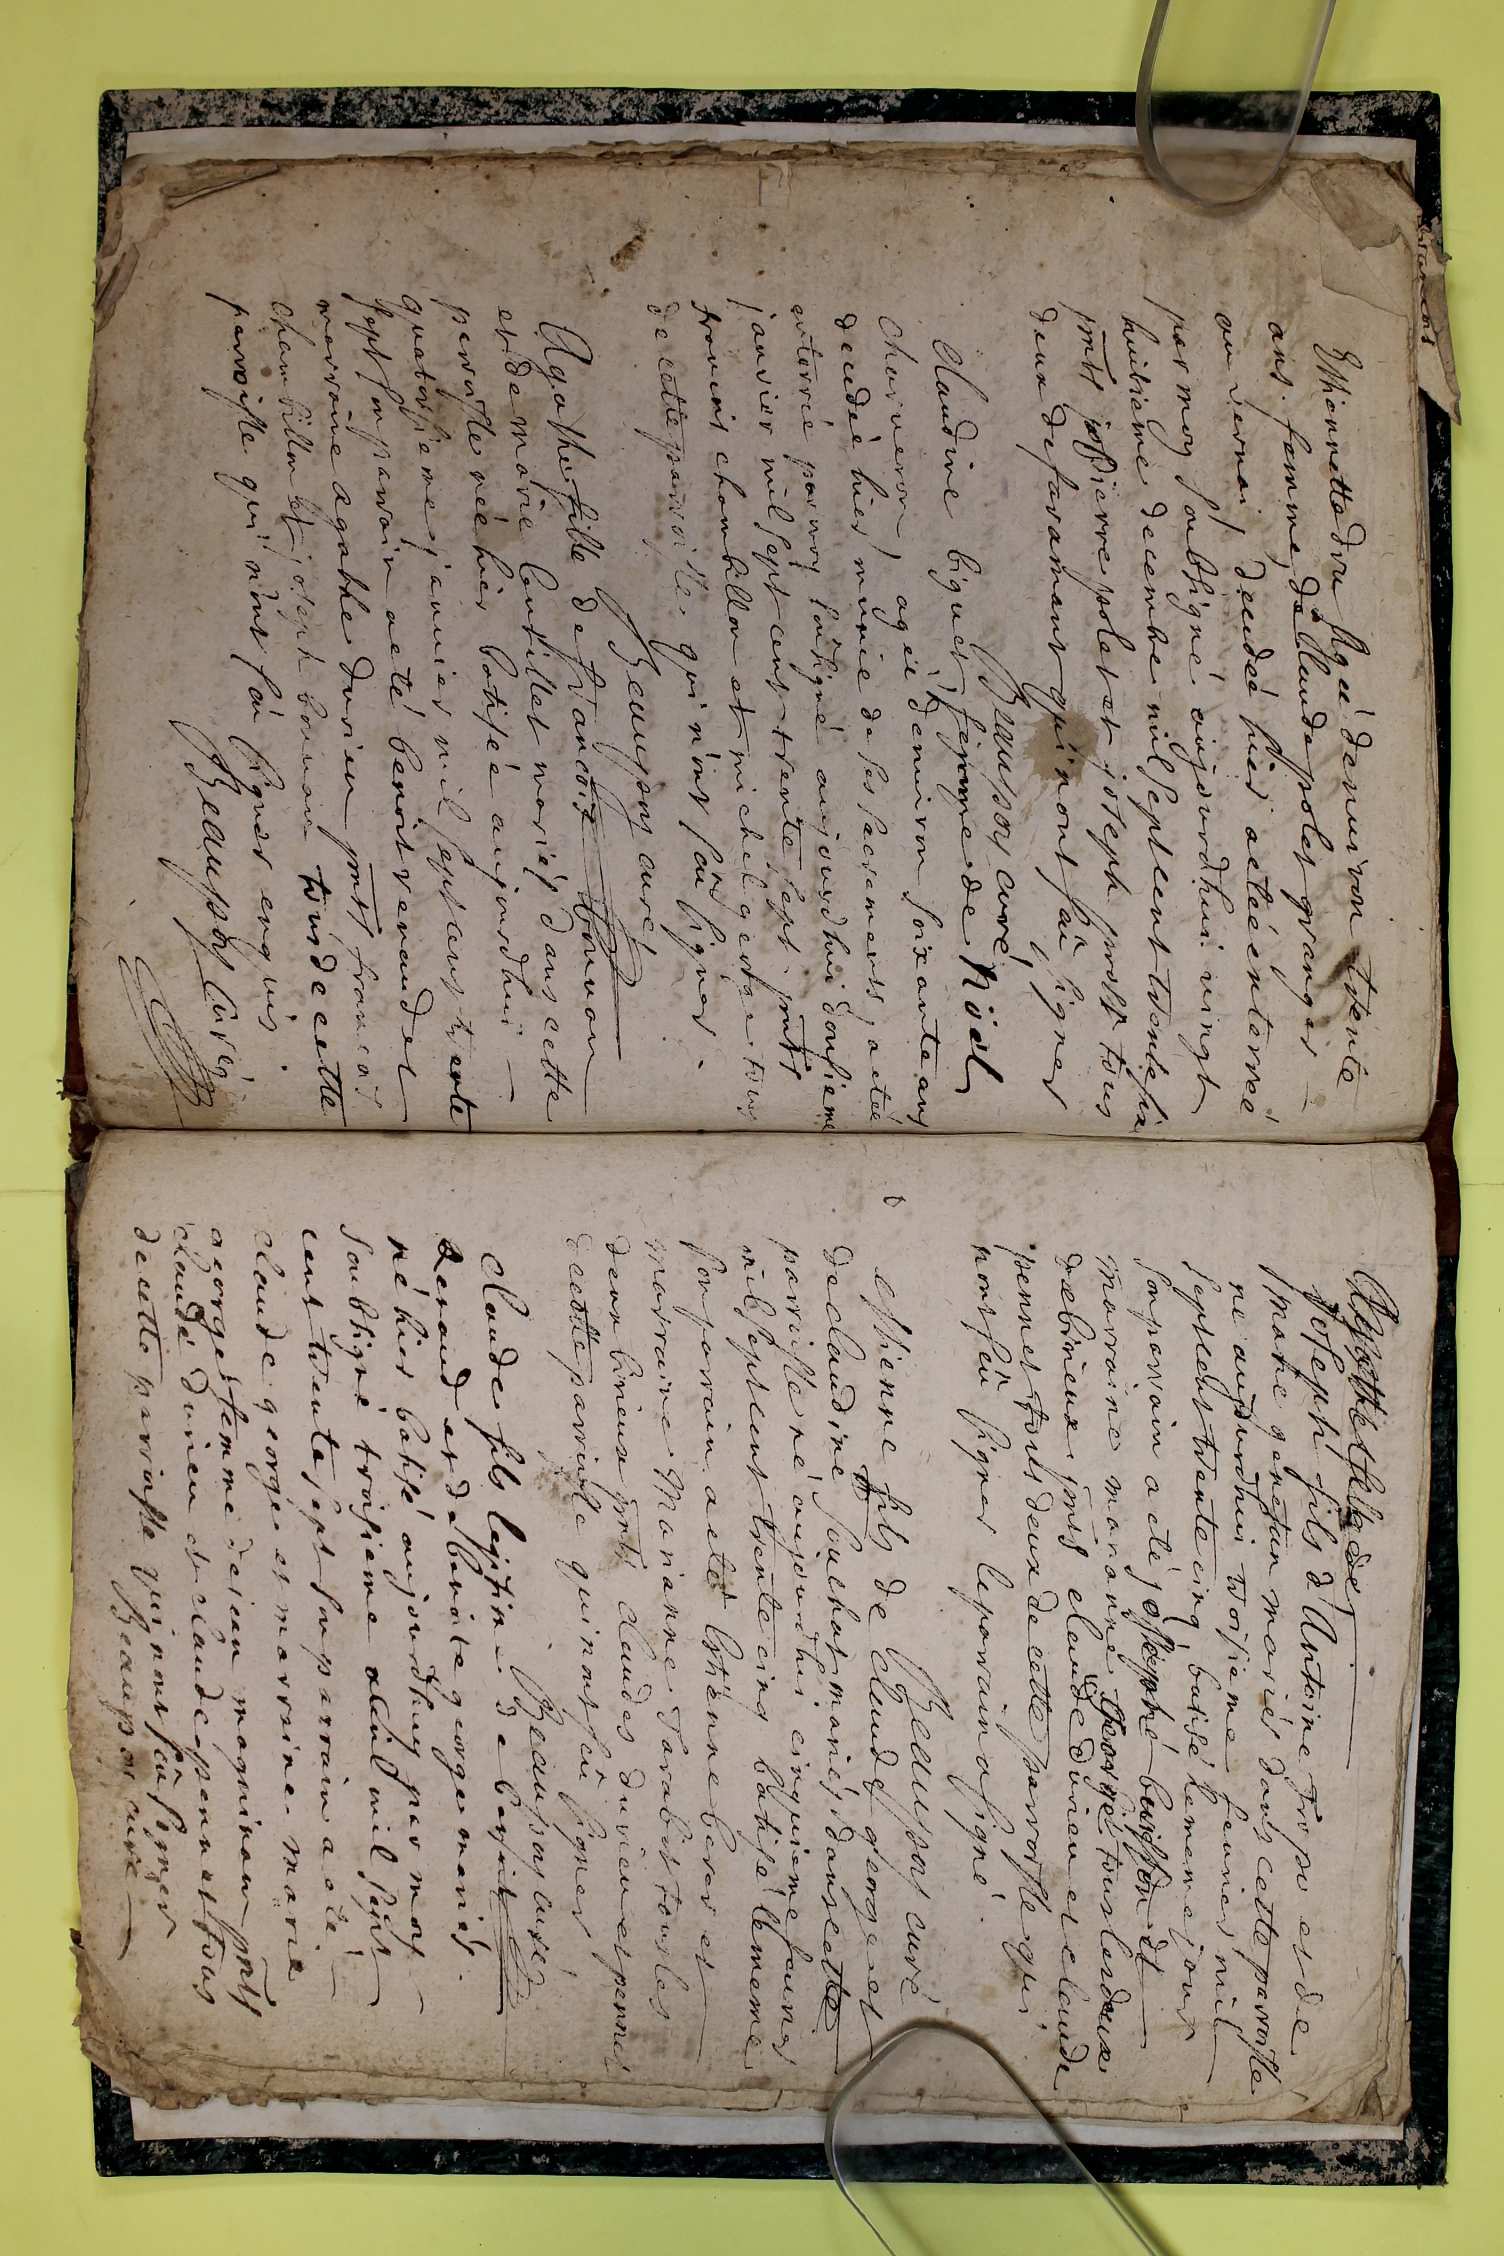 Estiennette dru ageé denuiron trente
ans. femme de Claude polet granger
au vernai, decedeé hier aeteé enterreé
par moy soubsigné aujourdhui vingt
huitieme decembre mil sept cent trente six
pnts pierre polet et joseph prost tous
deux de saramant qui nont sçu signer
Beaupos curé
Claudine biguet femme de Noel
charveron, ageé denuiron soixante ans
decedeé hier munie de ses sacrements, a eteé
enterreé par moy soubsigné aujourdhui onsieme
janvier mil sept cent trente sept. pnts
françois chambillon et michel george tous
de cette parroisse qui n'ont sçu signer.
Beaupos curé
Agathe fille de francois bouvan
et de marie lentillet mariés dans cette
parroisse neé hier batiseé aujourdhui
quatorsieme janvier mil sept cens trente
sept son parrain a eté benoit renaudet
marraine agathe durieu pnts francois
chambillon et joseph bouvan tous de cette
parroisse qui n'ont sçu signer enquis.
Beaupos curé
Joseph fils d'Antoine et de
mariés dans cette parroisse
ne aujourdhui troisieme feuvrier mil
sept cent trente cinq batisé le meme jour
son parrain a eté joseph buisson et
marraine marianne george tous les deux
debirieux pnts claude durieu et claude
pennet tous deux de cette parroisse qui
nont sçu signer le parrain a signé.
Beaupos curé
Estienne fils de claude george et
de claudine souchat mariés dans cette
parroisse né aujourdhui cinquieme feuvrier
mil sept cent trente cinq batisé le meme
son parrain a eté Estienne et
marraine Marianne tous les
deux birieux pnts claudes durieu et pennet
de cette parroisse qui nont sçu signer
Beaupos curé
Claude fils legitime de
renaud et de benoite george mariés.
né hier batisé aujourdhuy par moy
soubsigné troisieme avril mil sept
cent trente sept son parrain a eté
claude george et marraine marie
george femme de jean magninan pnts
claude durieu et claude pennet tous
de cette parroisse qui nont sçu signer
Beaupos curé